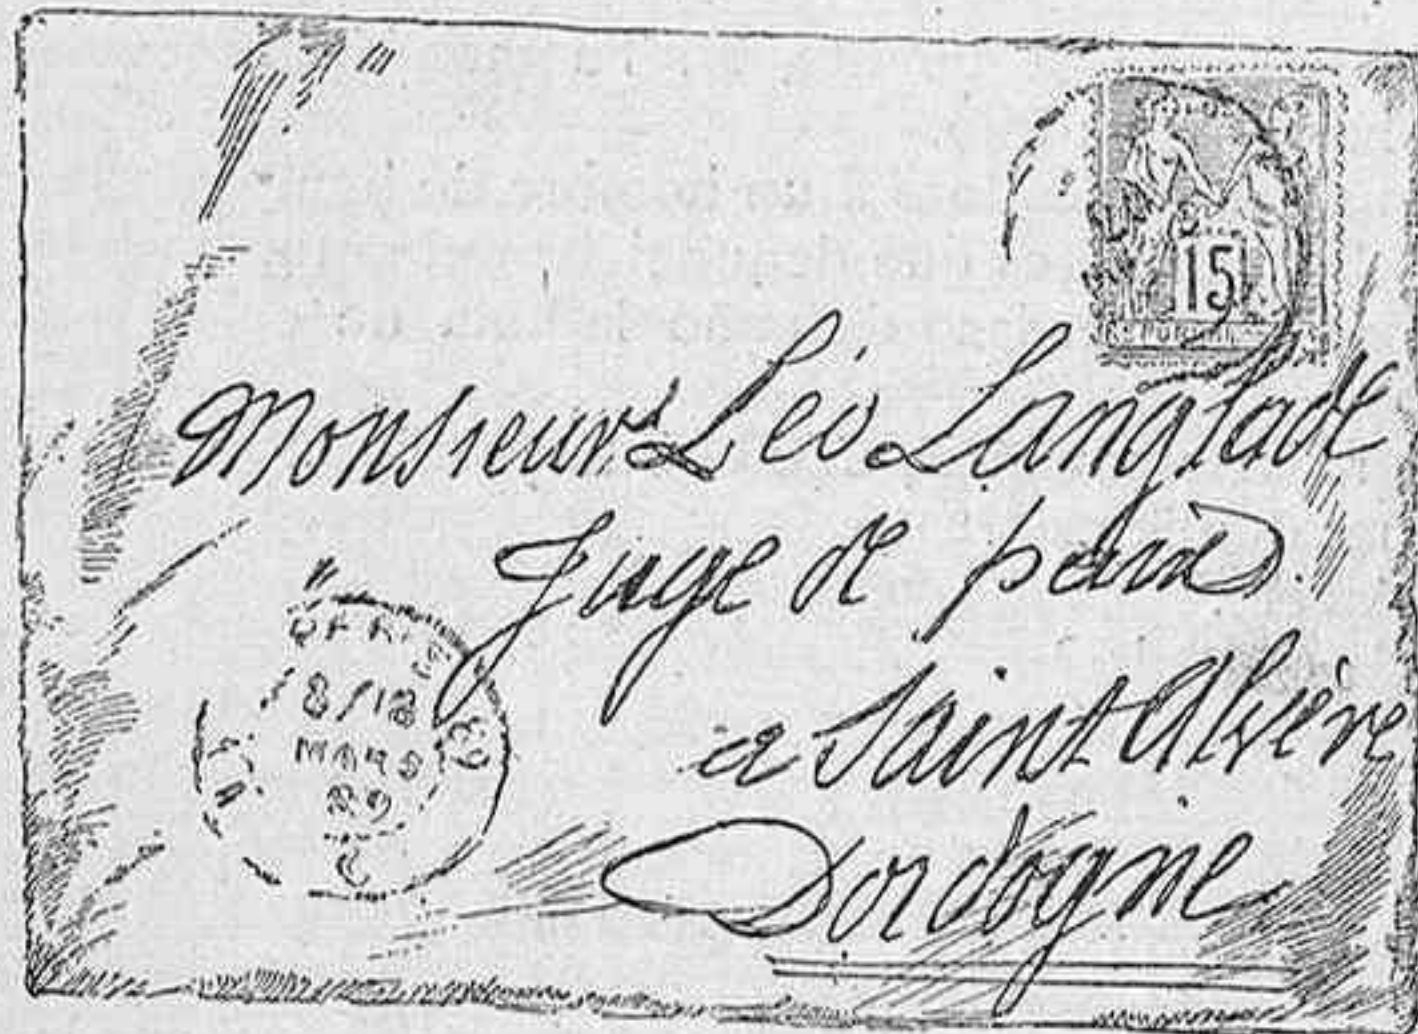 15
Monsieur Léo Langlade
Juge de paix
a Saint Alvère
Dordogne
MARS
89